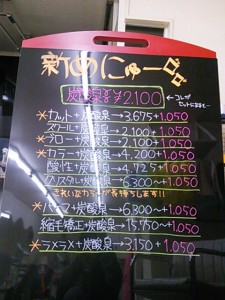 新めにゅー
炭酸泉 ¥2,100 ←コレが
セットになると…
*カット+炭酸泉→3,675+1,050
スクール+炭酸泉→2,100+1,050
*ブロー+炭酸泉→2,100+1,050
*カラー+炭酸泉→4,200+1,050
酸性+炭酸泉→4,725+1,050
+炭酸泉→6,300〜+1,050
きれいなカラーが長持ちします!!
*パーマ+炭酸泉→6,300〜+1,050
縮毛矯正+炭酸泉→15,750〜+1,050
*ラメラメ+炭酸泉→3,150+1,050